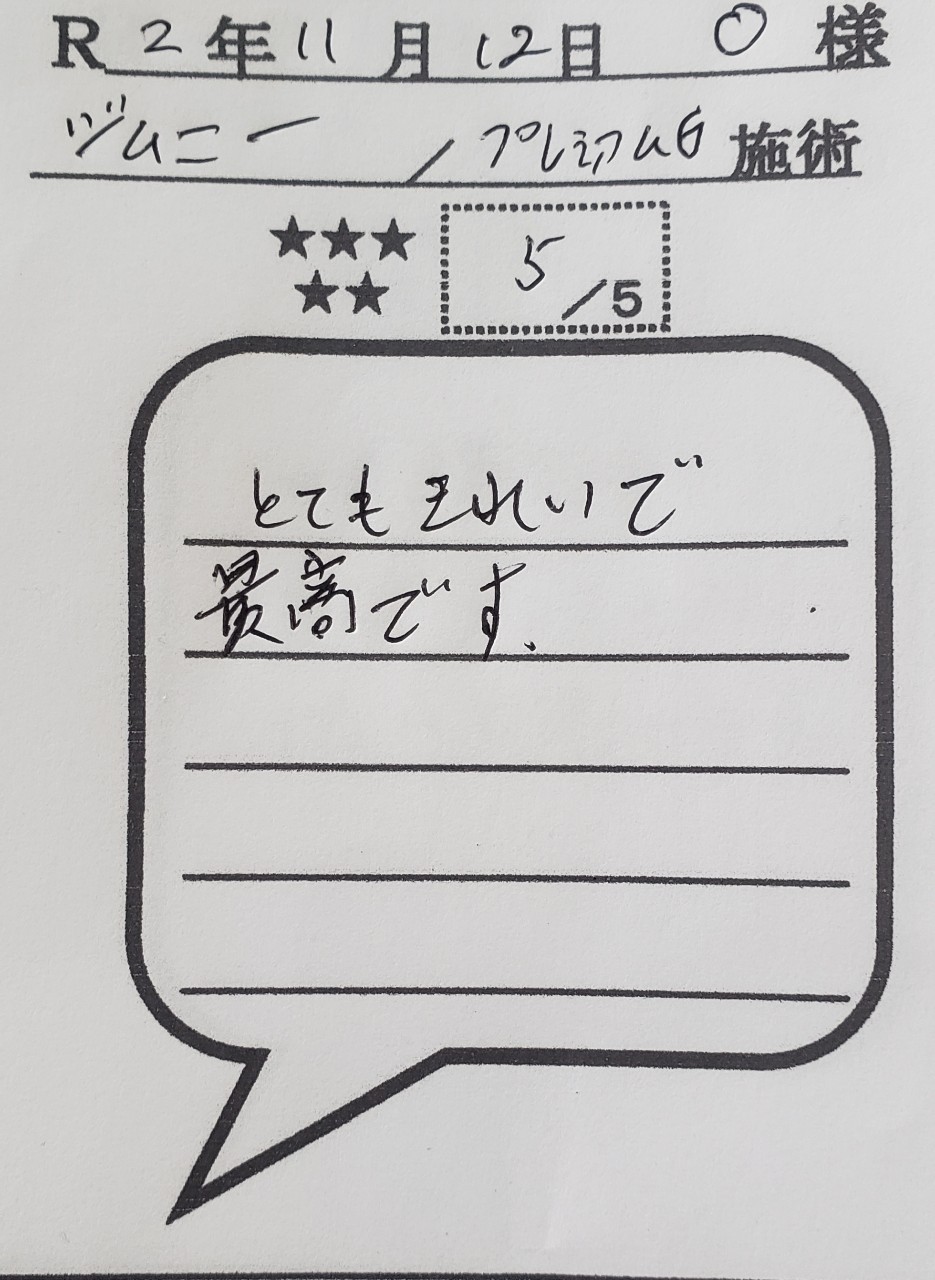 R2年11月12日 O様
ジムニー/プレミアムG施術
★★★ 5/5
★★
とてもきれいで
最高です.